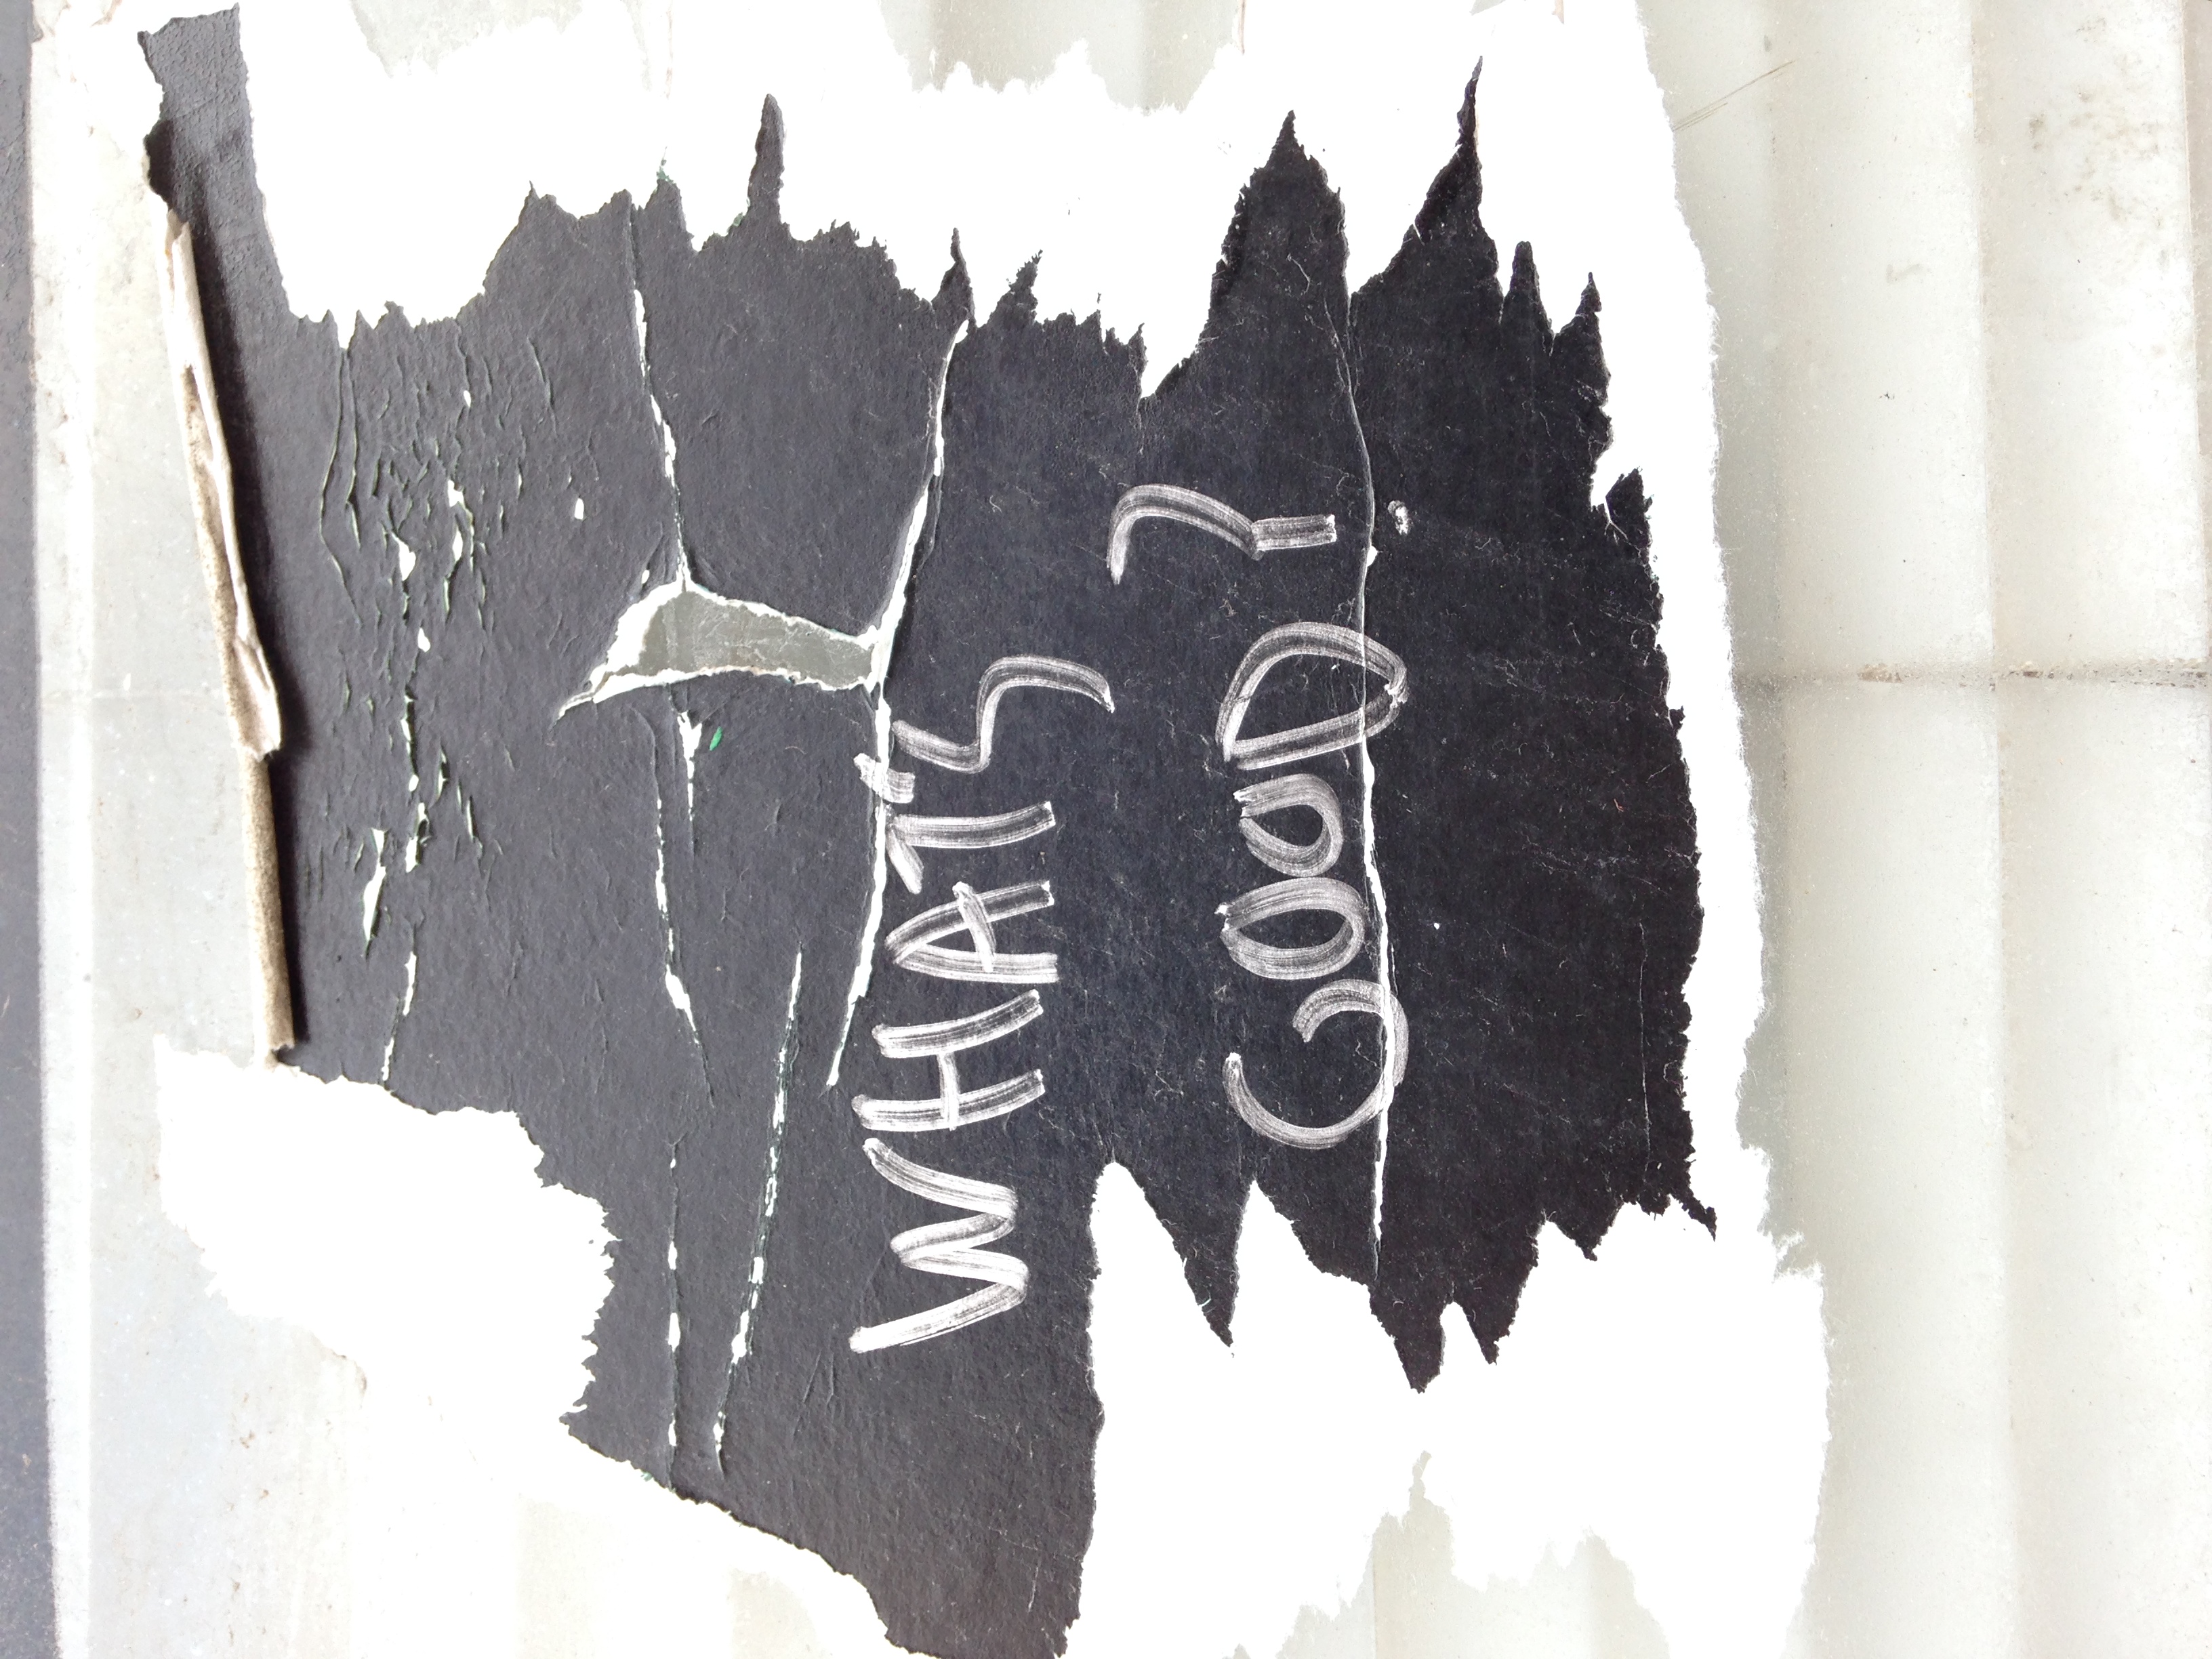 WHAT'S
GOOD?